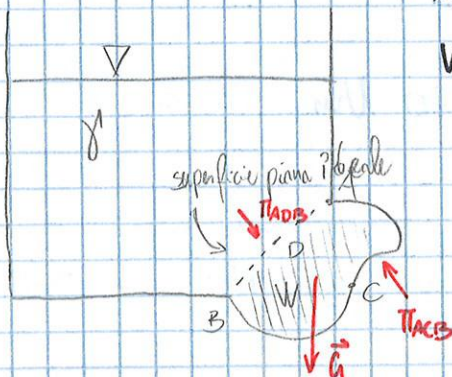 γ
superficie piana ideale
A
Π_ADB
D
W
C
B
Π_ACB
G⃗